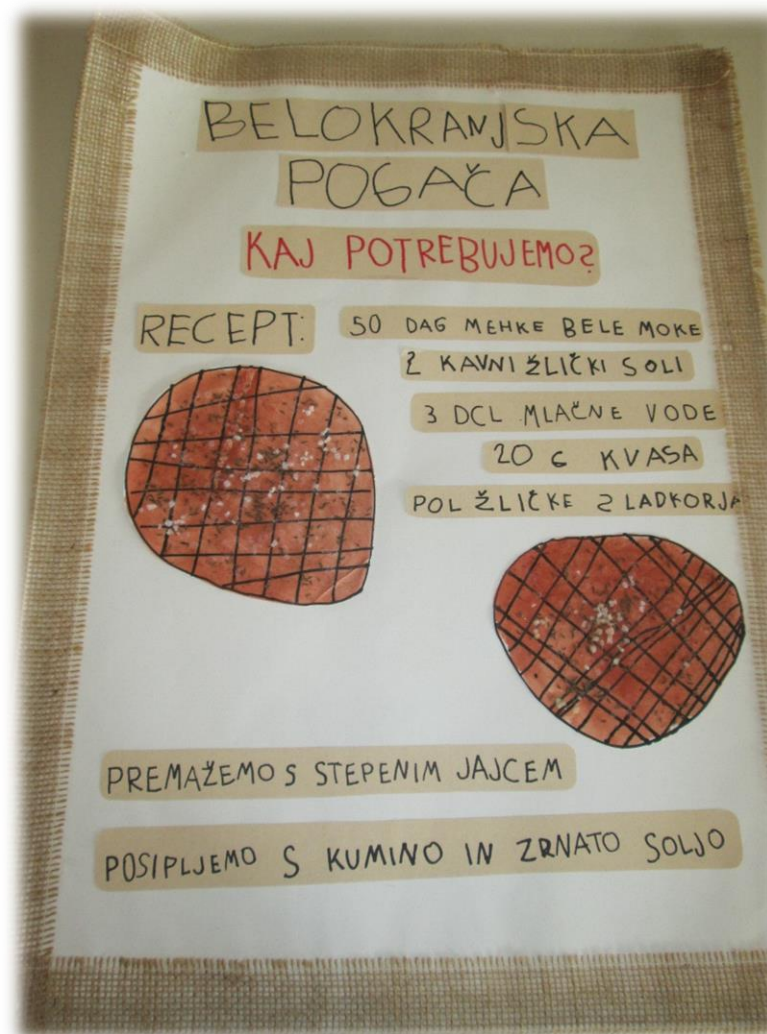 BELOKRANJSKA
POGAČA
KAJ POTREBUJEMO?
RECEPT:
50 DAG MEHKE BELE MOKE
2 KAVNI ŽLIČKI SOLI
3 DCL MLAČNE VODE
20 G KVASA
POL ŽLIČKE SLADKORJA
PREMAŽEMO S STEPENIM JAJCEM
POSIPLJEMO S KUMINO IN ZRNATO SOLJO